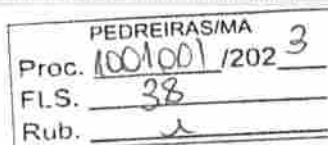 PEDREIRAS/MA
Proc. 1001001 /2023
FLS. 38
Rub.